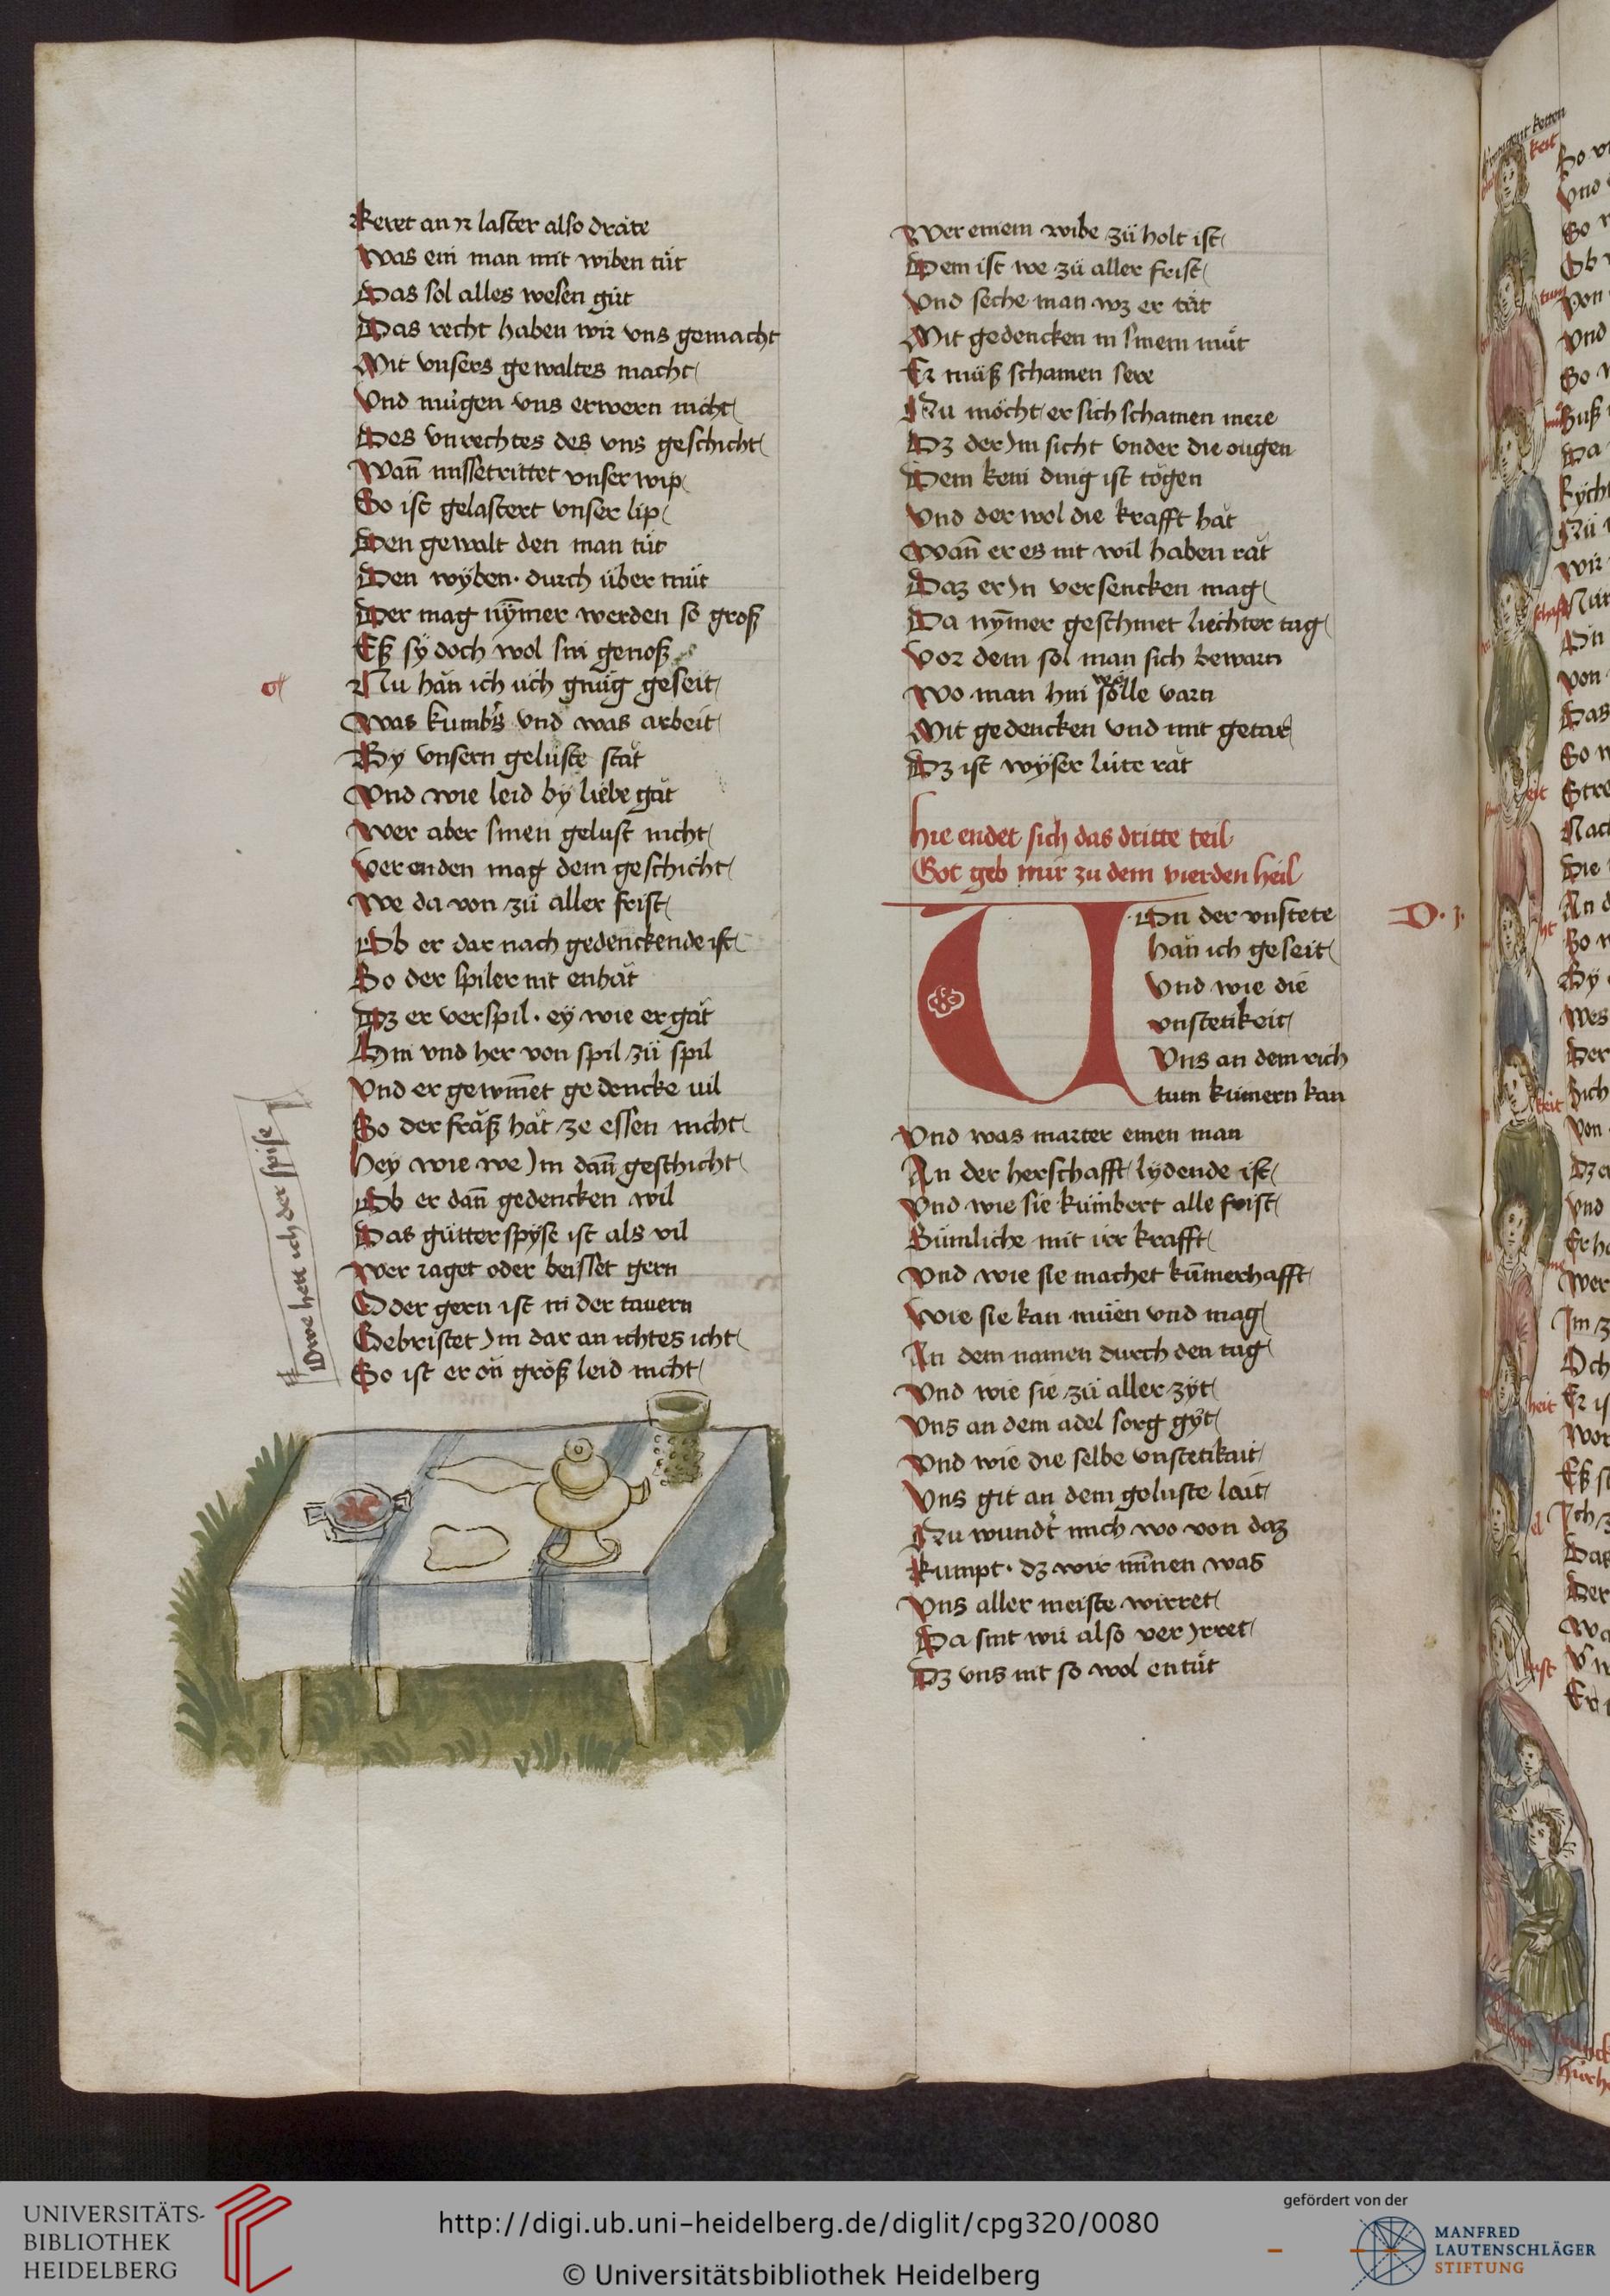 Keret an ir laster also dräte
Was ein man mit wiben tůt
Das sol alles wesen gůt
Das recht haben wir vns gemacht
Mit vnsers gewaltes macht
Vnd mugen vns erwern nicht
Des vnrechtes des vns geschicht
Wan̄ missetrittet vnser wip
So ist gelastert vnser lip
Den gewalt den man tůt
Den wyben. durch über můt
Der mag nym̄er werden so groß
Eß sÿ doch wol sin genoß
Nu hǎn ich üch gnůg geseit
Was kumb's vnd was arbeit
By vnsern geluste stǎt
Vnd wie leid by liebe gǎt
Wer aber sinen gelust nicht
Verenden mag dem geschicht
We da von zů aller frist
Ob er dar nach gedenckende ist
So der spiler nit enhǎt
Dz er verspil. ey wie er gǎt
Hin vnd her von spil zů spil
Vnd er gewin̄et gedencke uil
So der frǎß hǎt ze essen nicht
Hey wie we Jm dan̄ geschicht
Ob er dan̄ gedencken wil
Das gůtter spyse ist als vil
Wer iaget oder beisset gern
Oder gern ist in der tauern
Gebristet Jm dar an ichtes icht
So ist er on groß leid nicht
Owe hett ich der spise
Wer einem wibe zů holt ist
Dem ist we zů aller frist
Vnd seche man wz er tǎt
Mit gedencken in sinem můt
Er můß schamen sere
Nu möcht er sich schamen mere
Dz der Jm sicht vnder die ougen
Dem kein ding ist tögen
Vnd der wol die krafft hǎt
Wan̄ er es nit wil haben rǎt
Daz er Jn versencken mag
Da nym̄er geschinet liechter tag
Vor dem sol man sich bewarn
Wo man hin sölle varn
Mit gedencken vnd mit getat
Dz ist wyser lüte rǎt
Hie endet sich das dritte teil
Got geb mir zu dem vierden heil
VOn der vnstete
hǎn ich geseit
Vnd wie die
vnstetikeit
Vns an dem rich
tum kümern kan
D. j.
Vnd was marter einen man
An der herschafft lydende ist
Vnd wie sie kümbert alle frist
Sümliche mit irr krafft
Vnd wie sie machet kum̄erhafft
Wie sie kan müen vnd mag
An dem namen durch den tag
Vnd wie sie zů aller zyt
Vns an dem adel sorg gyt
Vnd wie die selbe vnstetikait
Vns git an dem geluste lait
Nu wundt' mich wo von daz
kumpt. dz wir min̄en was
Vns aller meiste wirret
Da sint wir also ver Jrret
Dz vns nit so wol entůt
UNIVERSITÄTS-
BIBLIOTHEK
HEIDELBERG
http://digi.ub.uni-heidelberg.de/diglit/cpg320/0080
© Universitätsbibliothek Heidelberg
gefördert von der
MANFRED
LAUTENSCHLÄGER
STIFTUNG